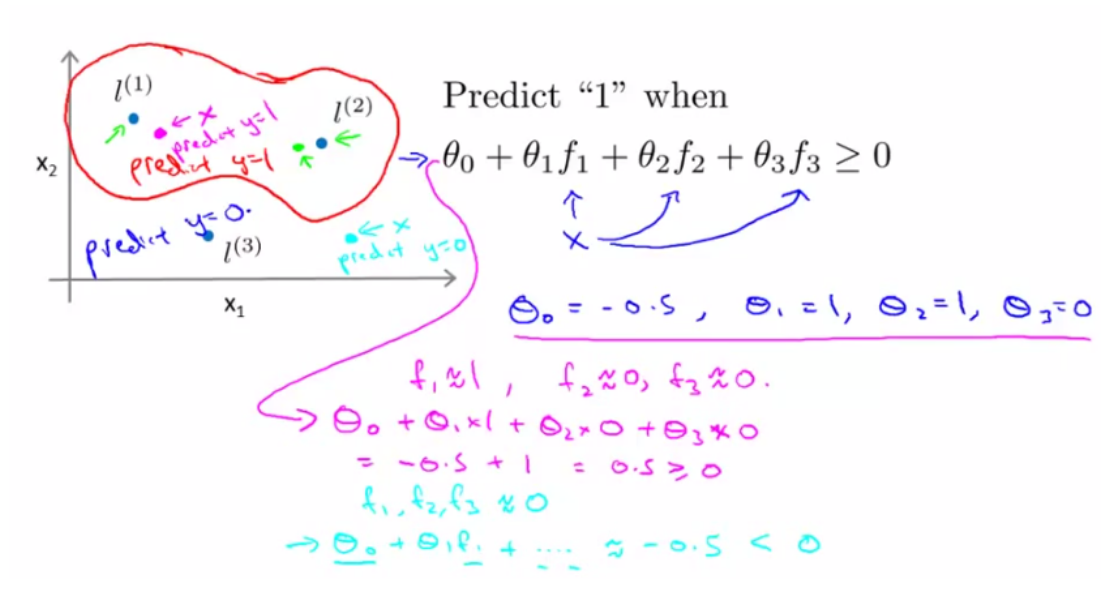 l^{(1)}
← x
predict y=1
l^{(2)}
predict y=1
x₂
predict y=0.
l^{(3)}
← x
predict y=0
x₁
Predict “1” when
→ θ₀ + θ₁f₁ + θ₂f₂ + θ₃f₃ ≥ 0
x
θ₀ = -0.5, θ₁ = 1, θ₂ = 1, θ₃ = 0
f₁ ≈ 1, f₂ ≈ 0, f₃ ≈ 0.
→ θ₀ + θ₁×1 + θ₂×0 + θ₃×0
= -0.5 + 1 = 0.5 ≥ 0
f₁, f₂, f₃ ≈ 0
→ θ₀ + θ₁f₁ + .... ≈ -0.5 < 0